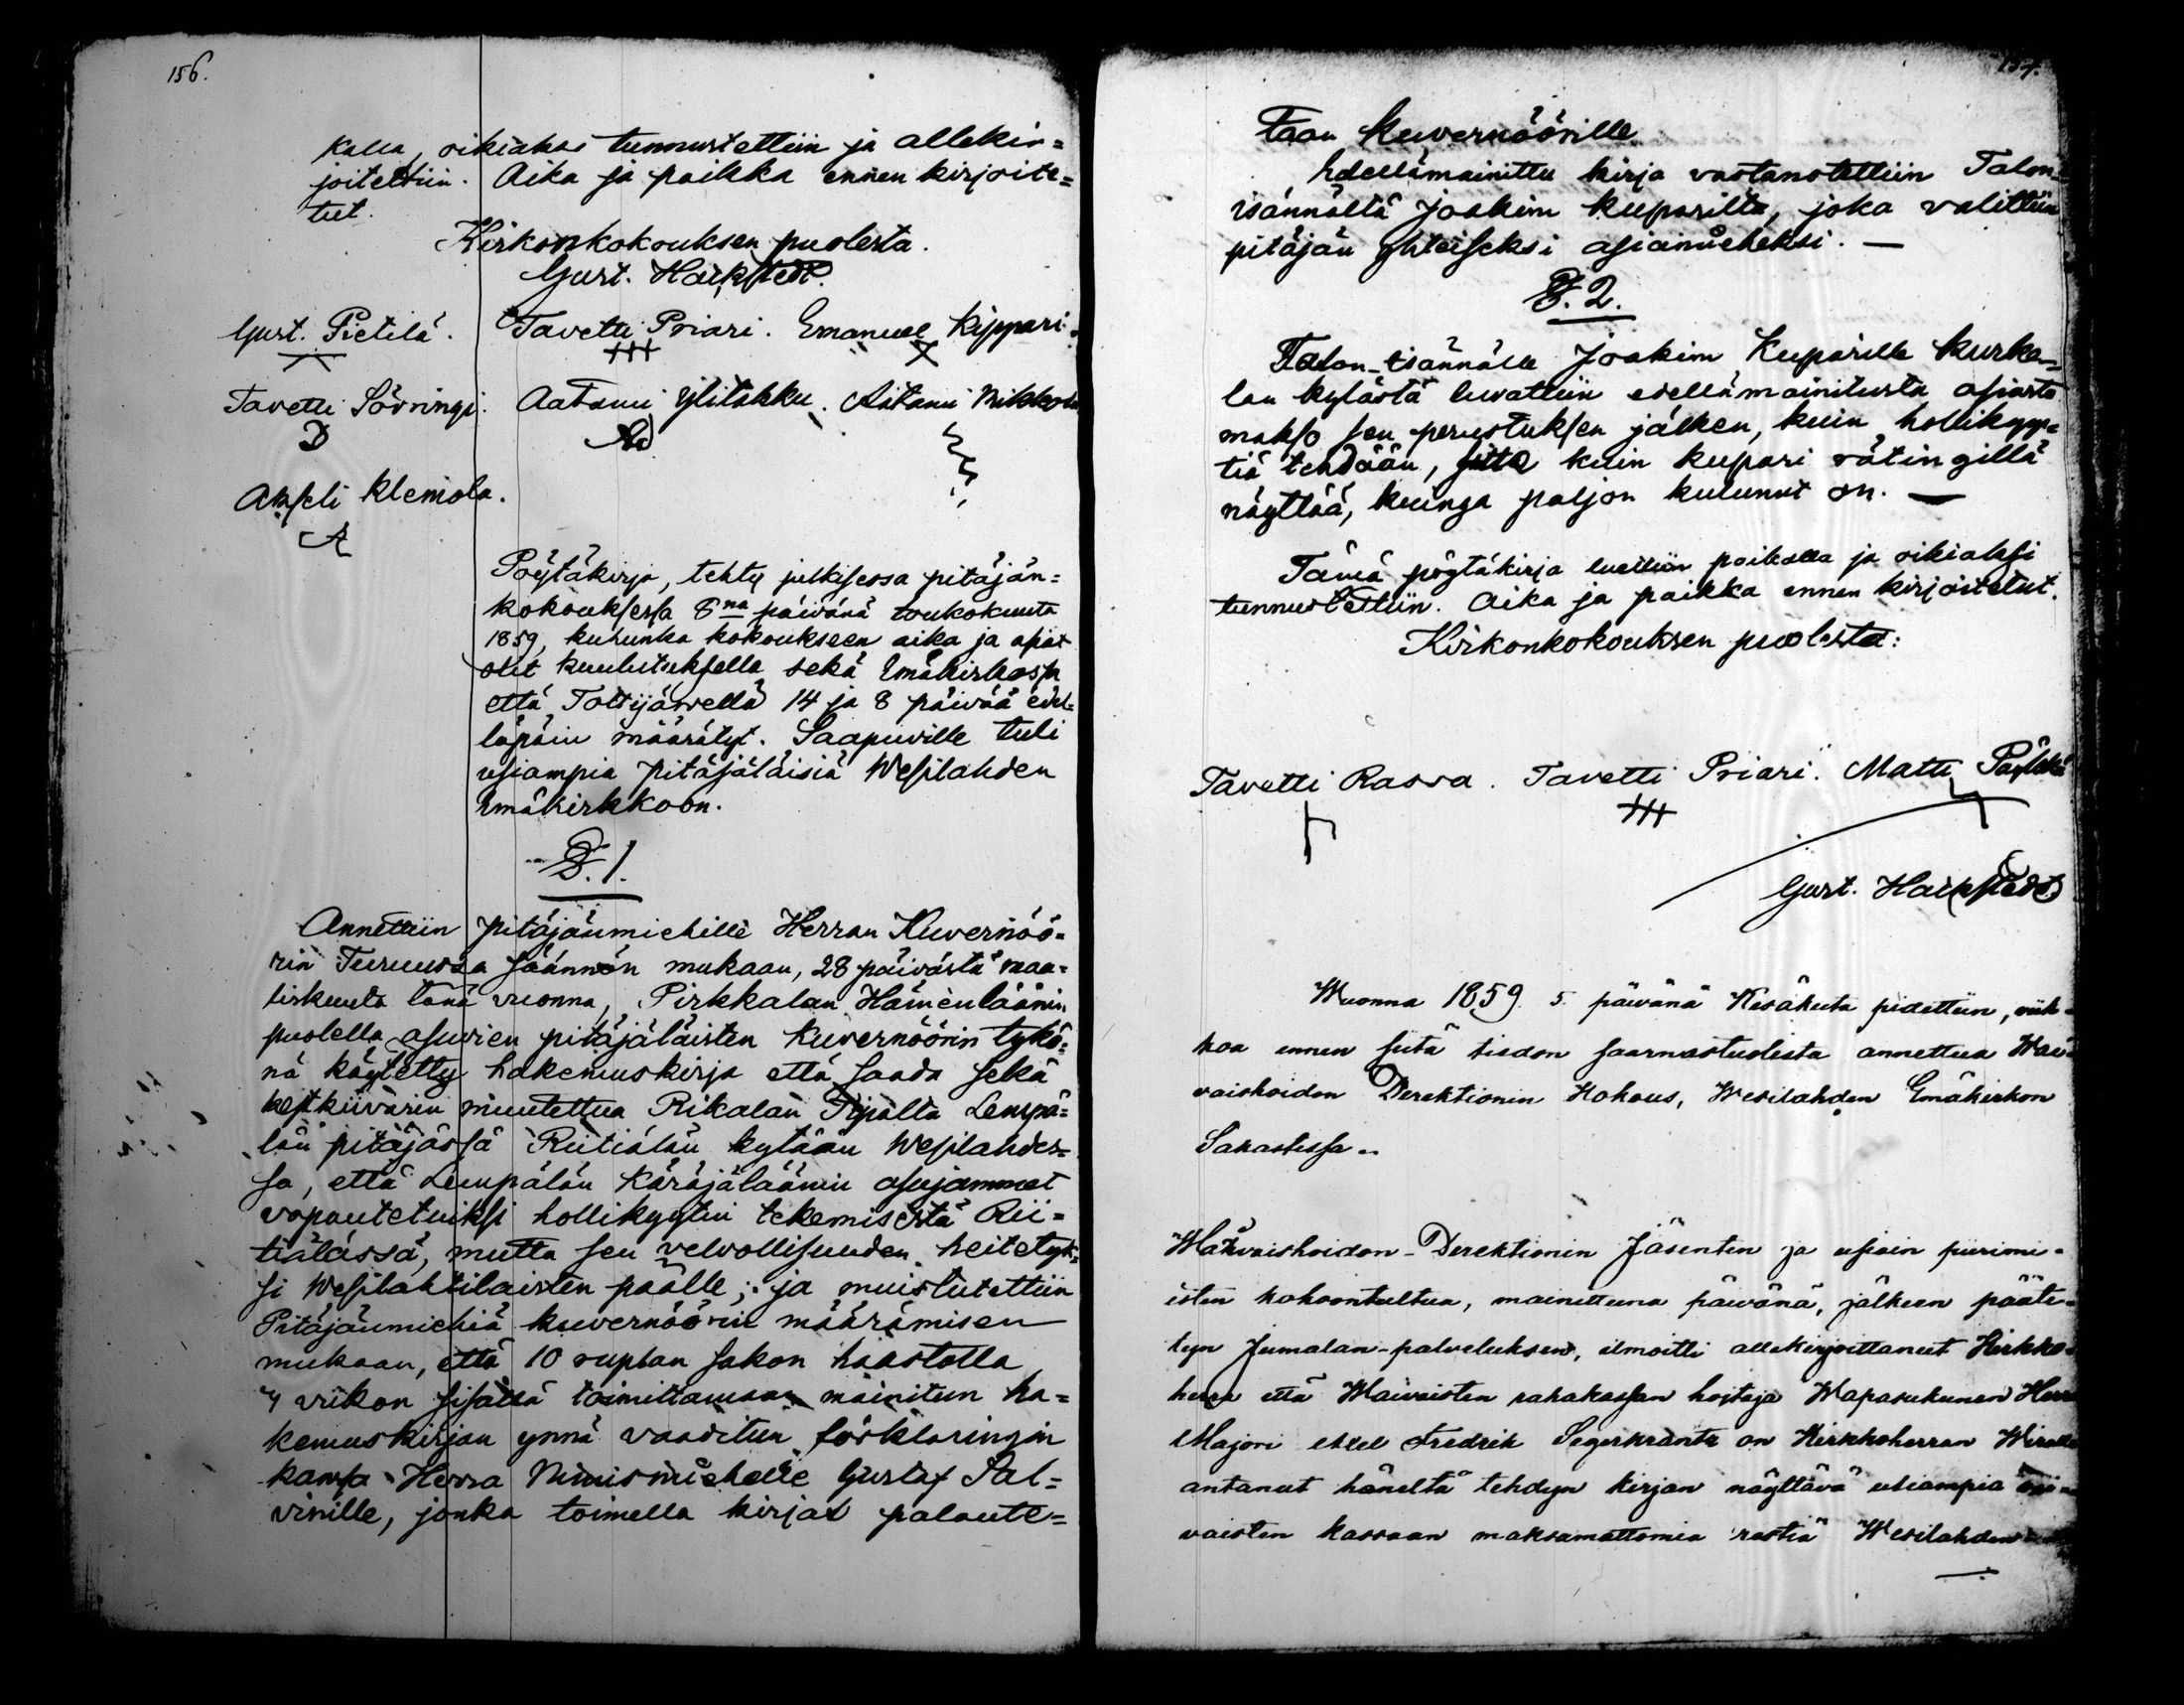 156.
kalla, oikiaksi tunnustettiin ja allekir=
joitettiin. Aika ja paikka ennen kirjoite=
tut.
Kirkonkokouksen puolesta.
Gust. Hackstedt.
Gust. Pietilä. Tavetti Priari. Emanuel Kippari.
Tavetti Sövringi. Aatami Ylitakku. Aatami Mikkola
D
Akseli Klemola.
A
Pöytäkirja, tehty julkisessa pitäjän=
kokouksessa 8na päivänä toukokuuta
1859, kuhunka kokoukseen aika ja asiat
olit kuulutuksella sekä Emäkirkossa
että Tottijärvellä 14 ja 8 päivää edel=
läpäin määrätyt. Saapuville tuli
usiampia pitäjäläisiä Wesilahden
Emäkirkkoon.
§. 1.
Annettiin pitäjänmiehille Herran Kuvernöö=
rin Turuussa säännön mukaan, 28 päivästä maa=
liskuuta tänä vuonna, Pirkkalan Hämeenläänin
puolella asuvien pitäjäläisten Kuvernöörin tykö=
nä käytetty hakemuskirja että saada sekä
kestkiivarin muutettua Rikalan Tipalta Lempä=
län pitäjässä Riitialan kylään Wesilahdes=
sa, että Lempälän Käräjäläänin asujammet
vapautetuiksi hollikyytin tekemisestä Rii=
tialassa, mutta sen velvollisuuden heitetyk=
si Wesilahtilaisten päälle; ja muistutettiin
Pitäjänmiehiä kuvernöörin määrämisen
mukaan, että 10 ruplan sakon haastolla
4 viikon sisällä toimittamaan mainitun ha=
kemuskirjan ynnä vaaditun förklaringin
kansa Herra Nimismiehelle Gustaf Sal=
vinille, jonka toimella kirjat palaute=
157.
taan Kuvernöörille.
Edellämainittu kirja vastanotettiin Talon=
isännältä Joakim Kuparilta, joka valittiin
pitäjän yhteiseksi asiamieheksi. —
§. 2.
Talon-isännälle Joakim Kuparille Kurka=
lan kylästä luvattiin edellämainitusta asiasta
makso sen perustuksen jälken, kuin hollikyy=
tiä tehdään, sitte kuin Kupari rätingillä
näyttää, kuinga paljon kulunut on. —
Tämä pöytäkirja luettiin paikalla ja oikiaksi
tunnustettiin. Aika ja paikka ennen kirjoitetut.
Kirkonkokouksen puolesta:
Tavetti Rassa. Tavetti Priari. Matti
Gust. Hackstedt
Wuonna 1859 5. päivänä Kesäkuta pidettiin, viik=
koa ennen siitä tiedon saarnastuolista annettua Wai=
vaishoidon Derektionin Kokous, Wesilahden Emäkirkon
Sakastissa..
Waivaishoidon-Derektionin Jäsenten ja usiain piirimi=
esten kokoontultua, mainittuna päivänä, jälkeen pääte=
tyn Jumalan-palveluksen, ilmoitti allekirjoittanut Kirkko=
herra että Waivaisten rahakassan hoitaja Wapasukunen Herra
Majori Axel Fredrik Segerkrantz on Kirkkoherran Wiralle
antanut häneltä tehdyn kirjan näyttävä usiampia vai=
vaisten kassaan maksamattomia rästiä Wesilahden